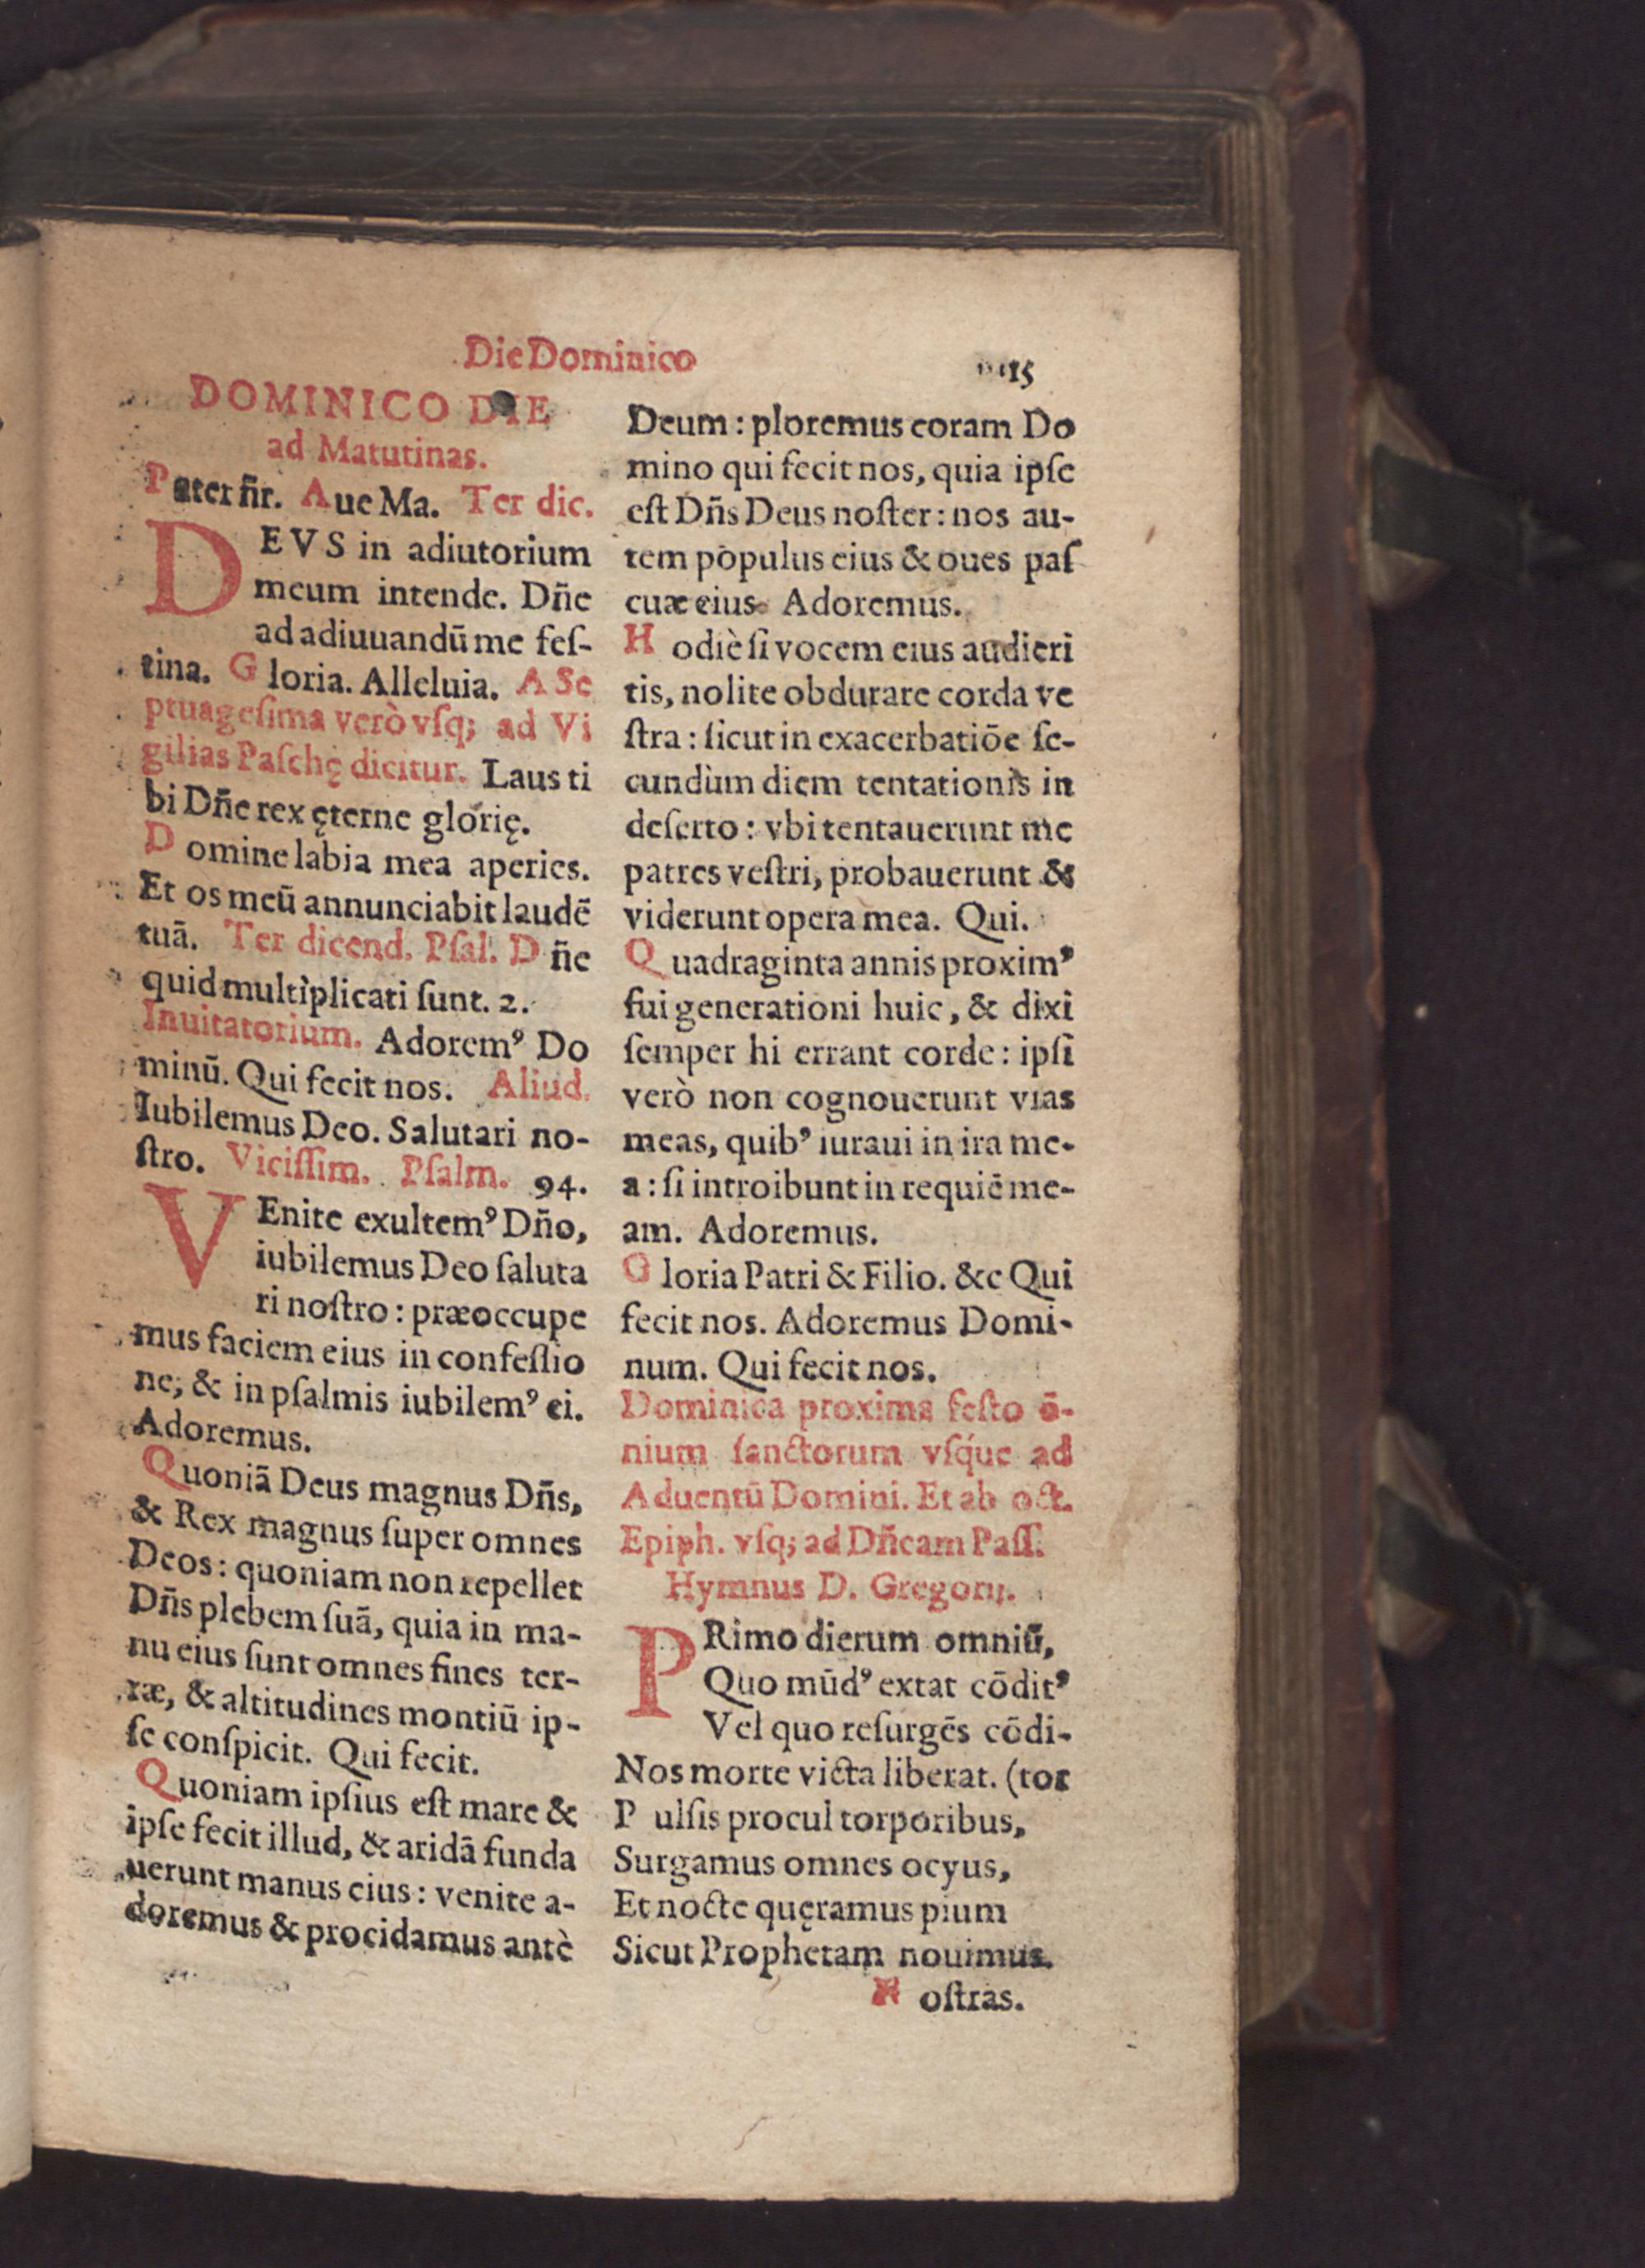 Die Dominico
15
DOMINICO DIE
ad Matutinas.
Pater nr̃. Aue Ma. Ter dic.
DEVS in adiutorium
meum intende. Dñe
ad adiuuandū me feſ-
tina. Gloria. Alleluia. A Se
ptuageſima verò vſq; ad Vi
gilias Paſchę dicitur. Laus ti
bi Dñe rex ęterne glorię.
Domine labia mea aperies.
Et os meū annunciabit laudē
tuā. Ter dicend. Pſal. Dñe
quid multìplicati ſunt. 2.
Inuitatorium. Adoremꝰ Do
minū. Qui fecit nos. Aliud.
Iubilemus Deo. Salutari no-
ſtro. Viciſſim. Pſalm. 94.
VEnite exultemꝰ Dño,
iubilemus Deo ſaluta
ri noſtro: præoccupe
mus faciem eius in confeſſio
ne, & in pſalmis iubilemꝰ ei.
Adoremus.
Quoniā Deus magnus Dñs,
& Rex magnus ſuper omnes
Deos: quoniam non repellet
Dñs plebem ſuā, quia in ma-
nu eius ſunt omnes fines ter-
ræ, & altitudines montiū ip-
ſe conſpicit. Qui fecit.
Quoniam ipſius eſt mare &
ipſe fecit illud, & aridā funda
uerunt manus eius: venite a-
doremus & procidamus antè
Deum: ploremus coram Do
mino qui fecit nos, quia ipſe
eſt Dñs Deus noſter: nos au-
tem populus eius & oues paſ
cuæ eius. Adoremus.
Hodiè ſi vocem eius audieri
tis, nolite obdurare corda ve
ſtra: ſicut in exacerbatiōe ſe-
cundùm diem tentationis in
deſerto: vbi tentauerunt me
patres veſtri, probauerunt &
viderunt opera mea. Qui.
Quadraginta annis proximꝰ
fui generationi huic, & dixi
ſemper hi errant corde: ipſi
verò non cognouerunt vias
meas, quibꝰ iuraui in ira me-
a: ſi introibunt in requiē me-
am. Adoremus.
Gloria Patri & Filio. &c Qui
fecit nos. Adoremus Domi-
num. Qui fecit nos.
Dominica proxima feſto ō-
nium ſanctorum vſq́ue ad
Aduentū Domini. Et ab oct.
Epiph. vſq; ad Dñcam Paſſ.
Hymnus D. Gregorij.
PRimo dierum omniū,
Quo mūdꝰ extat cōditꝰ
Vel quo reſurgēs cōdi-
Nos morte victa liberat. (tor
Pulſis procul torporibus,
Surgamus omnes ocyus,
Et nocte quęramus pium
Sicut Prophetam nouimus.
Noſtras.